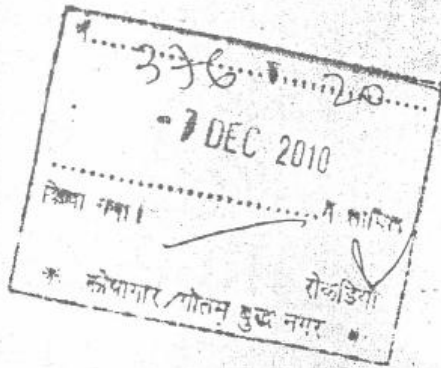 376 20
-7 DEC 2010
किया गया।
रोकड़िया
कोषागार/गौतम बुद्ध नगर